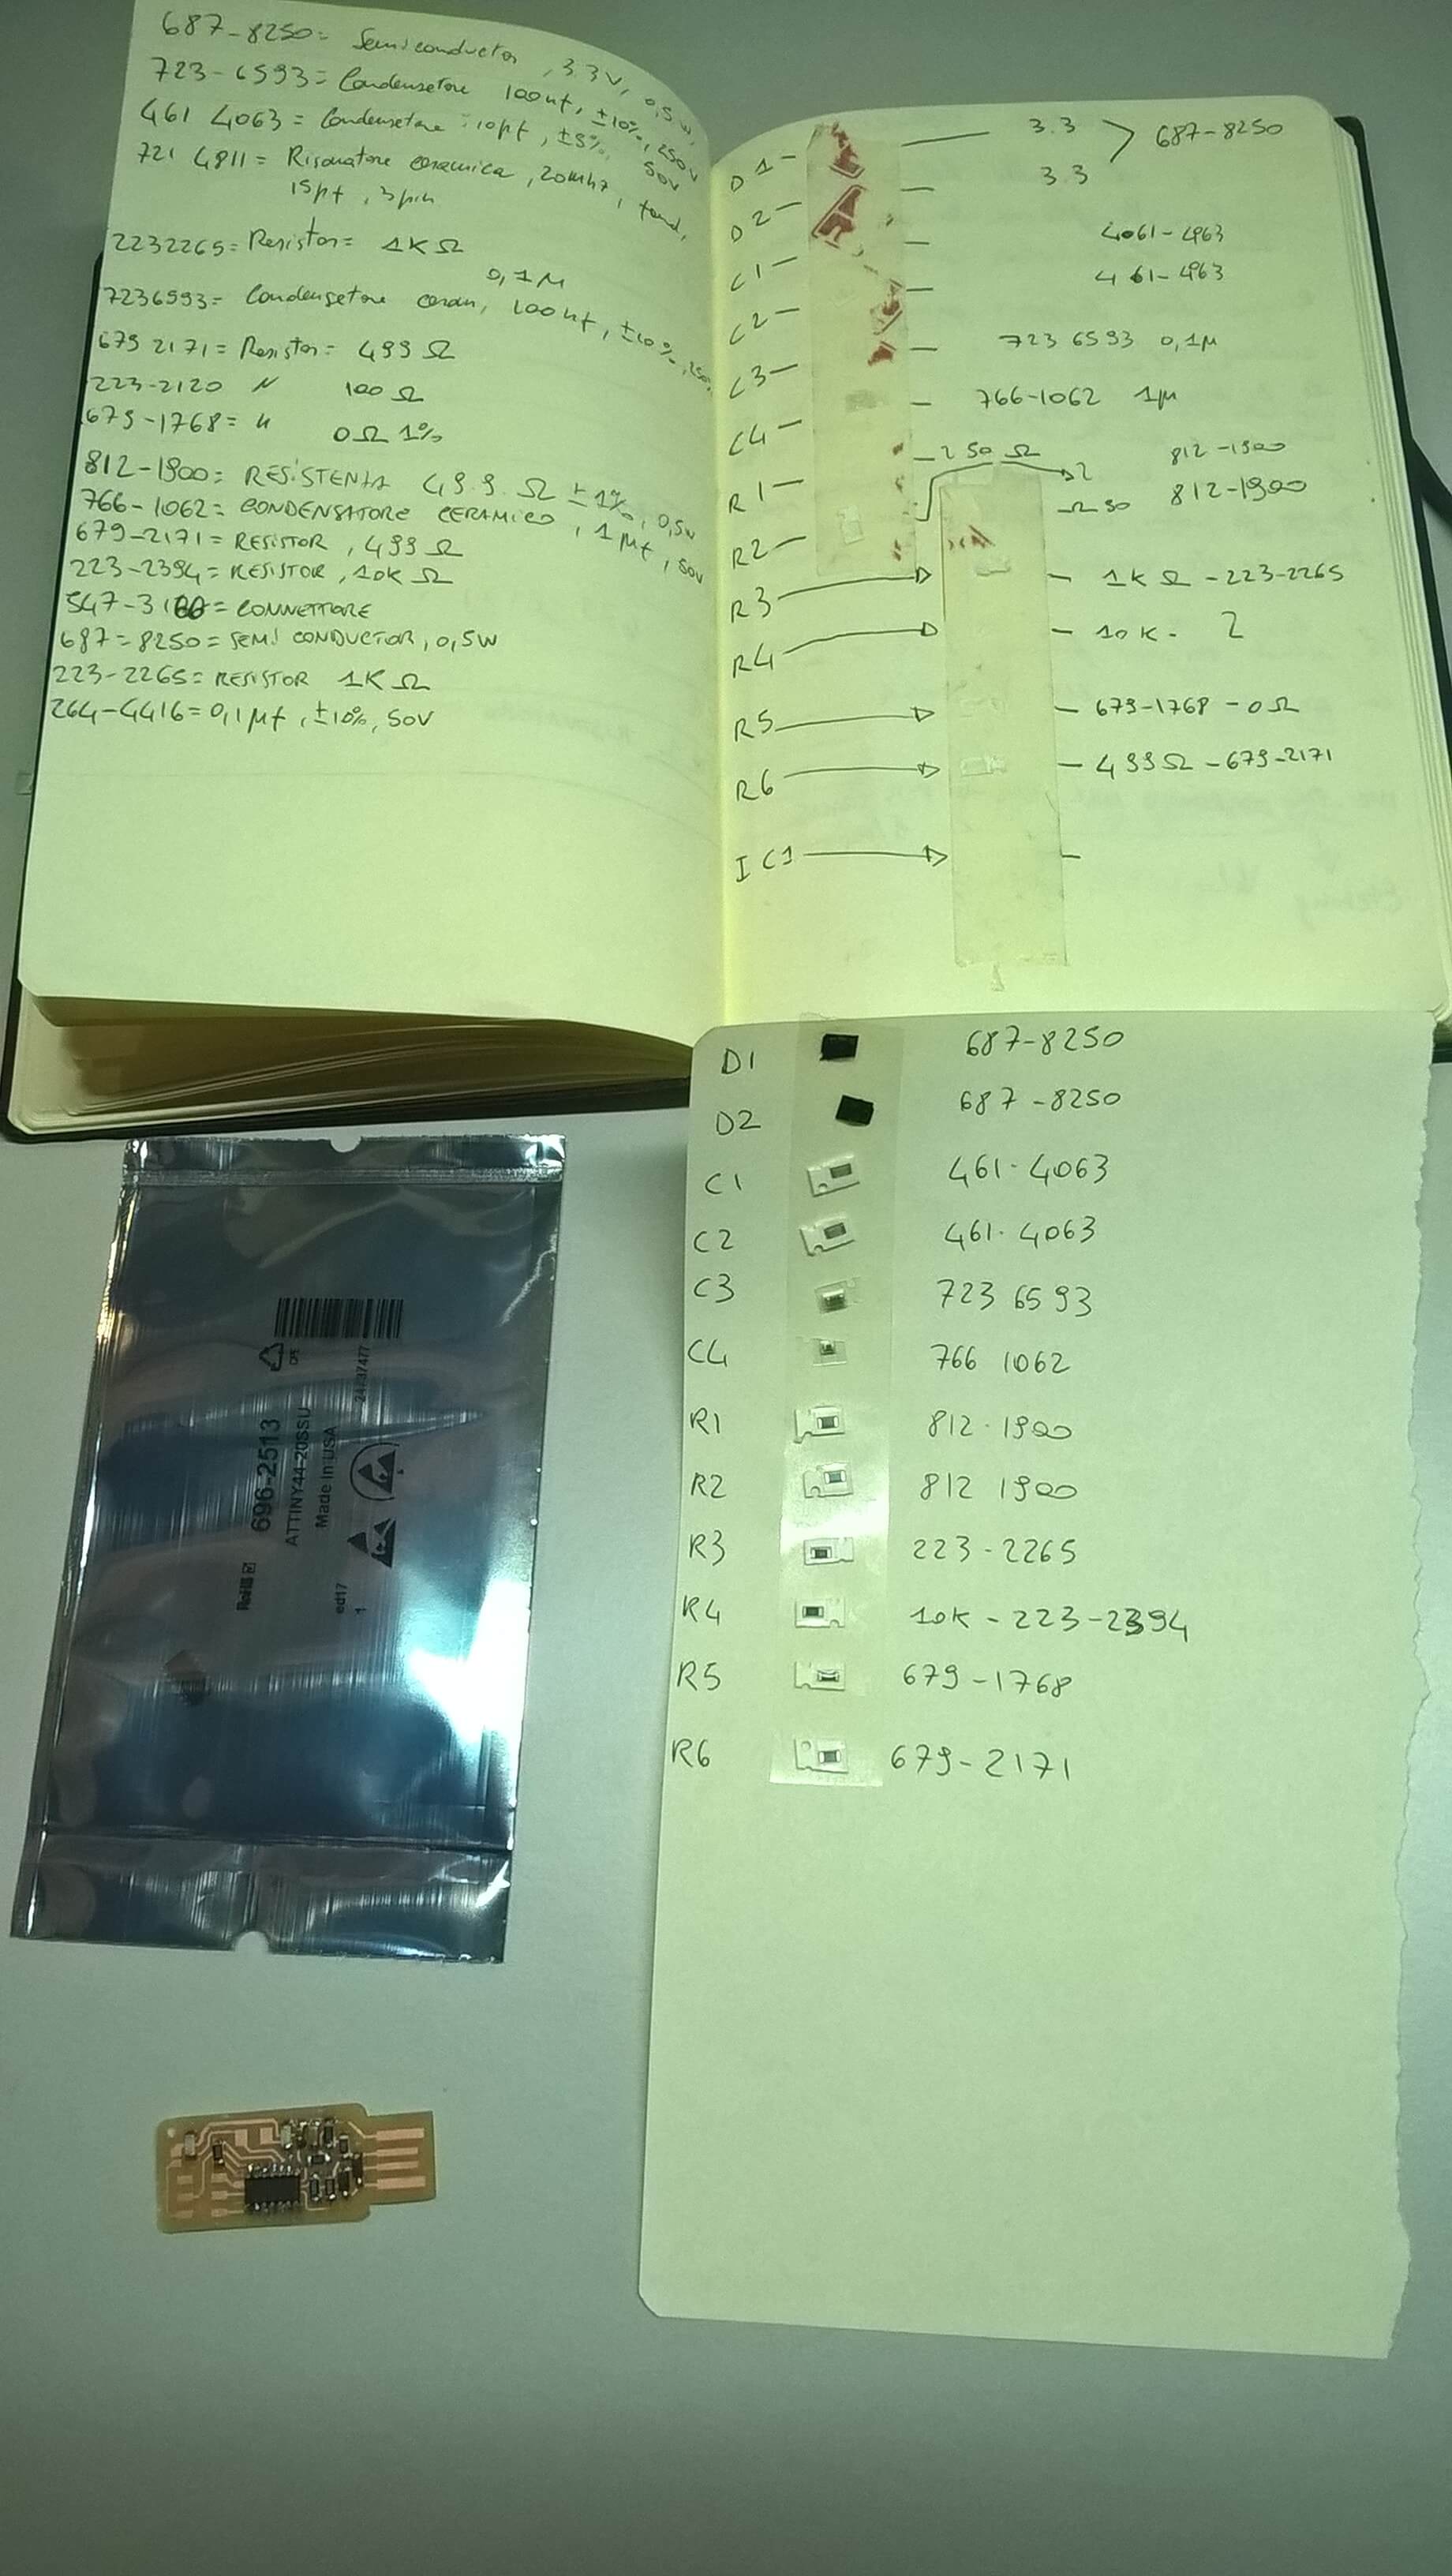 687-8250= Semiconductor, 3.3V, 0,5W,
723-6593= Condensatore 100nf, ±10%, 250V
461 4063 = Condensatore 10pf, ±5%, 50V
721 4811= Risonatore ceramica, 20mhz, fond,
15pf, 3pin
2232265= Resistor= 1KΩ
0,1M
7236593= Condensatore ceram, 100nf, ±10%, 250
679 2171= Resistor= 499 Ω
223-2120 " 100 Ω
679-1768= " 0Ω 1%
812-1900= RESISTENZA 49.9. Ω ±1%, 0,5W
766-1062= CONDENSATORE CERAMICO, 1µf, 50V
679-2171= RESISTOR, 499 Ω
223-2394= RESISTOR, 10K Ω
547-3166= CONNETTORE
687=8250= SEMI CONDUCTOR, 0,5W
223-2265= RESISTOR 1K Ω
264-4416= 0,1µf, ±10%, 50V
D1 3.3 687-8250
D2 3.3
C1 4061-4963
C2 461-4963
C3 723 6593 0,1µ
C4 766-1062 1µ
R1 2 50 Ω 812-1900
R2 Ω 50 812-1900
R3 1K Ω - 223-2265
R4 10K- 2
R5 679-1768 - 0Ω
R6 499Ω - 679-2171
IC1
D1 687-8250
D2 687-8250
C1 461-4063
C2 461-4063
C3 723 6593
C4 766 1062
R1 812-1900
R2 812 1900
R3 223-2265
R4 10K-223-2394
R5 679-1768
R6 679-2171
696-2513
ATTINY44-20SSU
Made in USA
24437477
RoHS
ed17
1